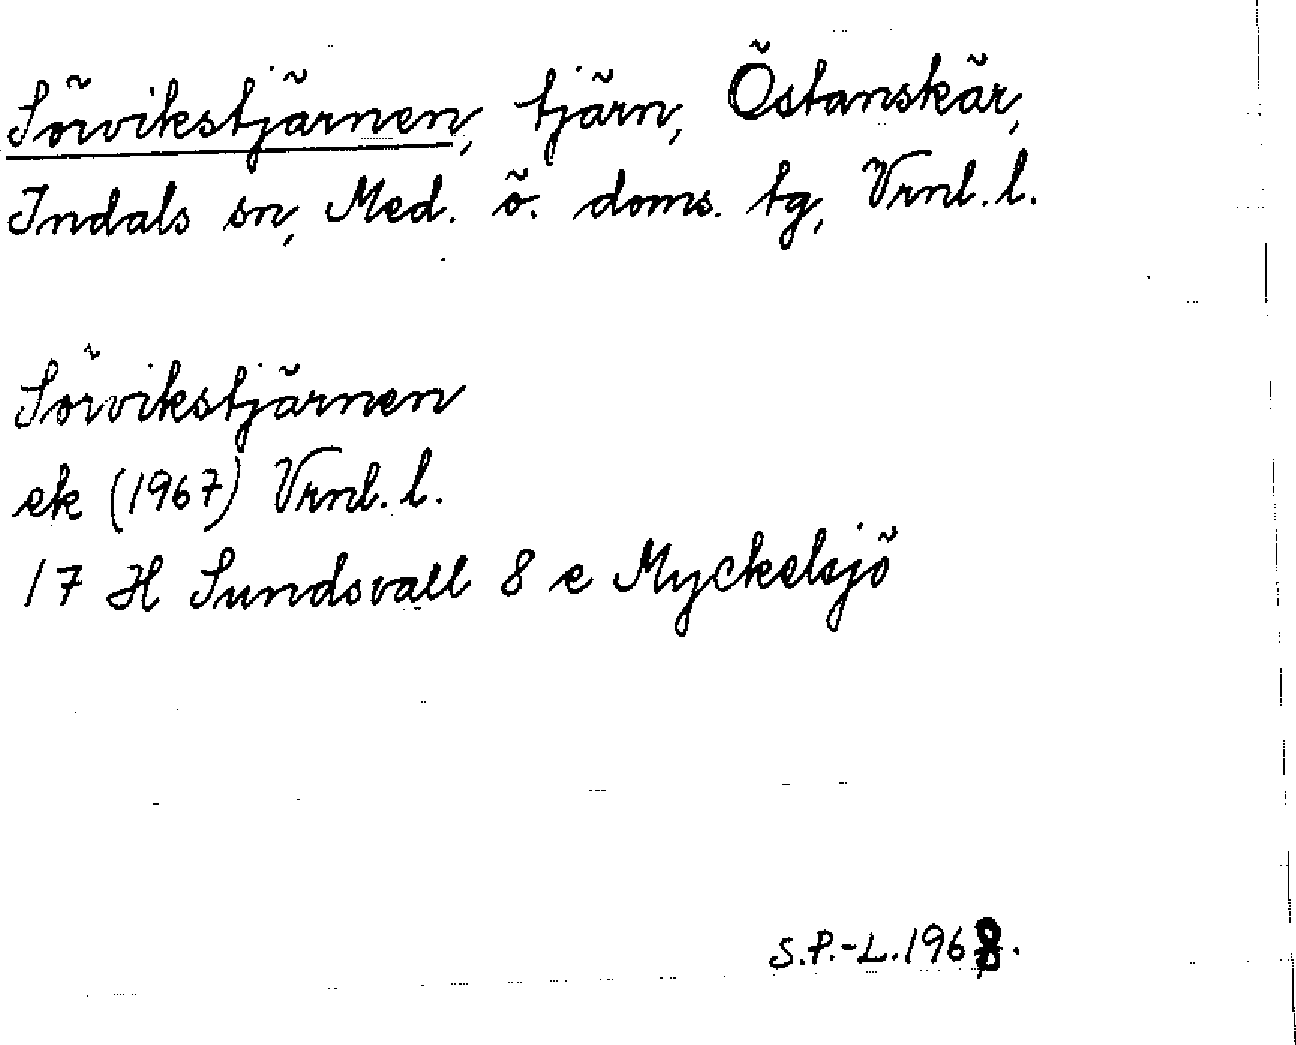 Sörvikstjärnen, tjärn, Östanskär,
Indals sn, Med. ö. doms. tg, Vrnl. l.
Sörvikstjärnen
ek (1967) Vrnl. l.
17 H Sundsvall 8 e Myckelsjö
S.P.-L. 1968.